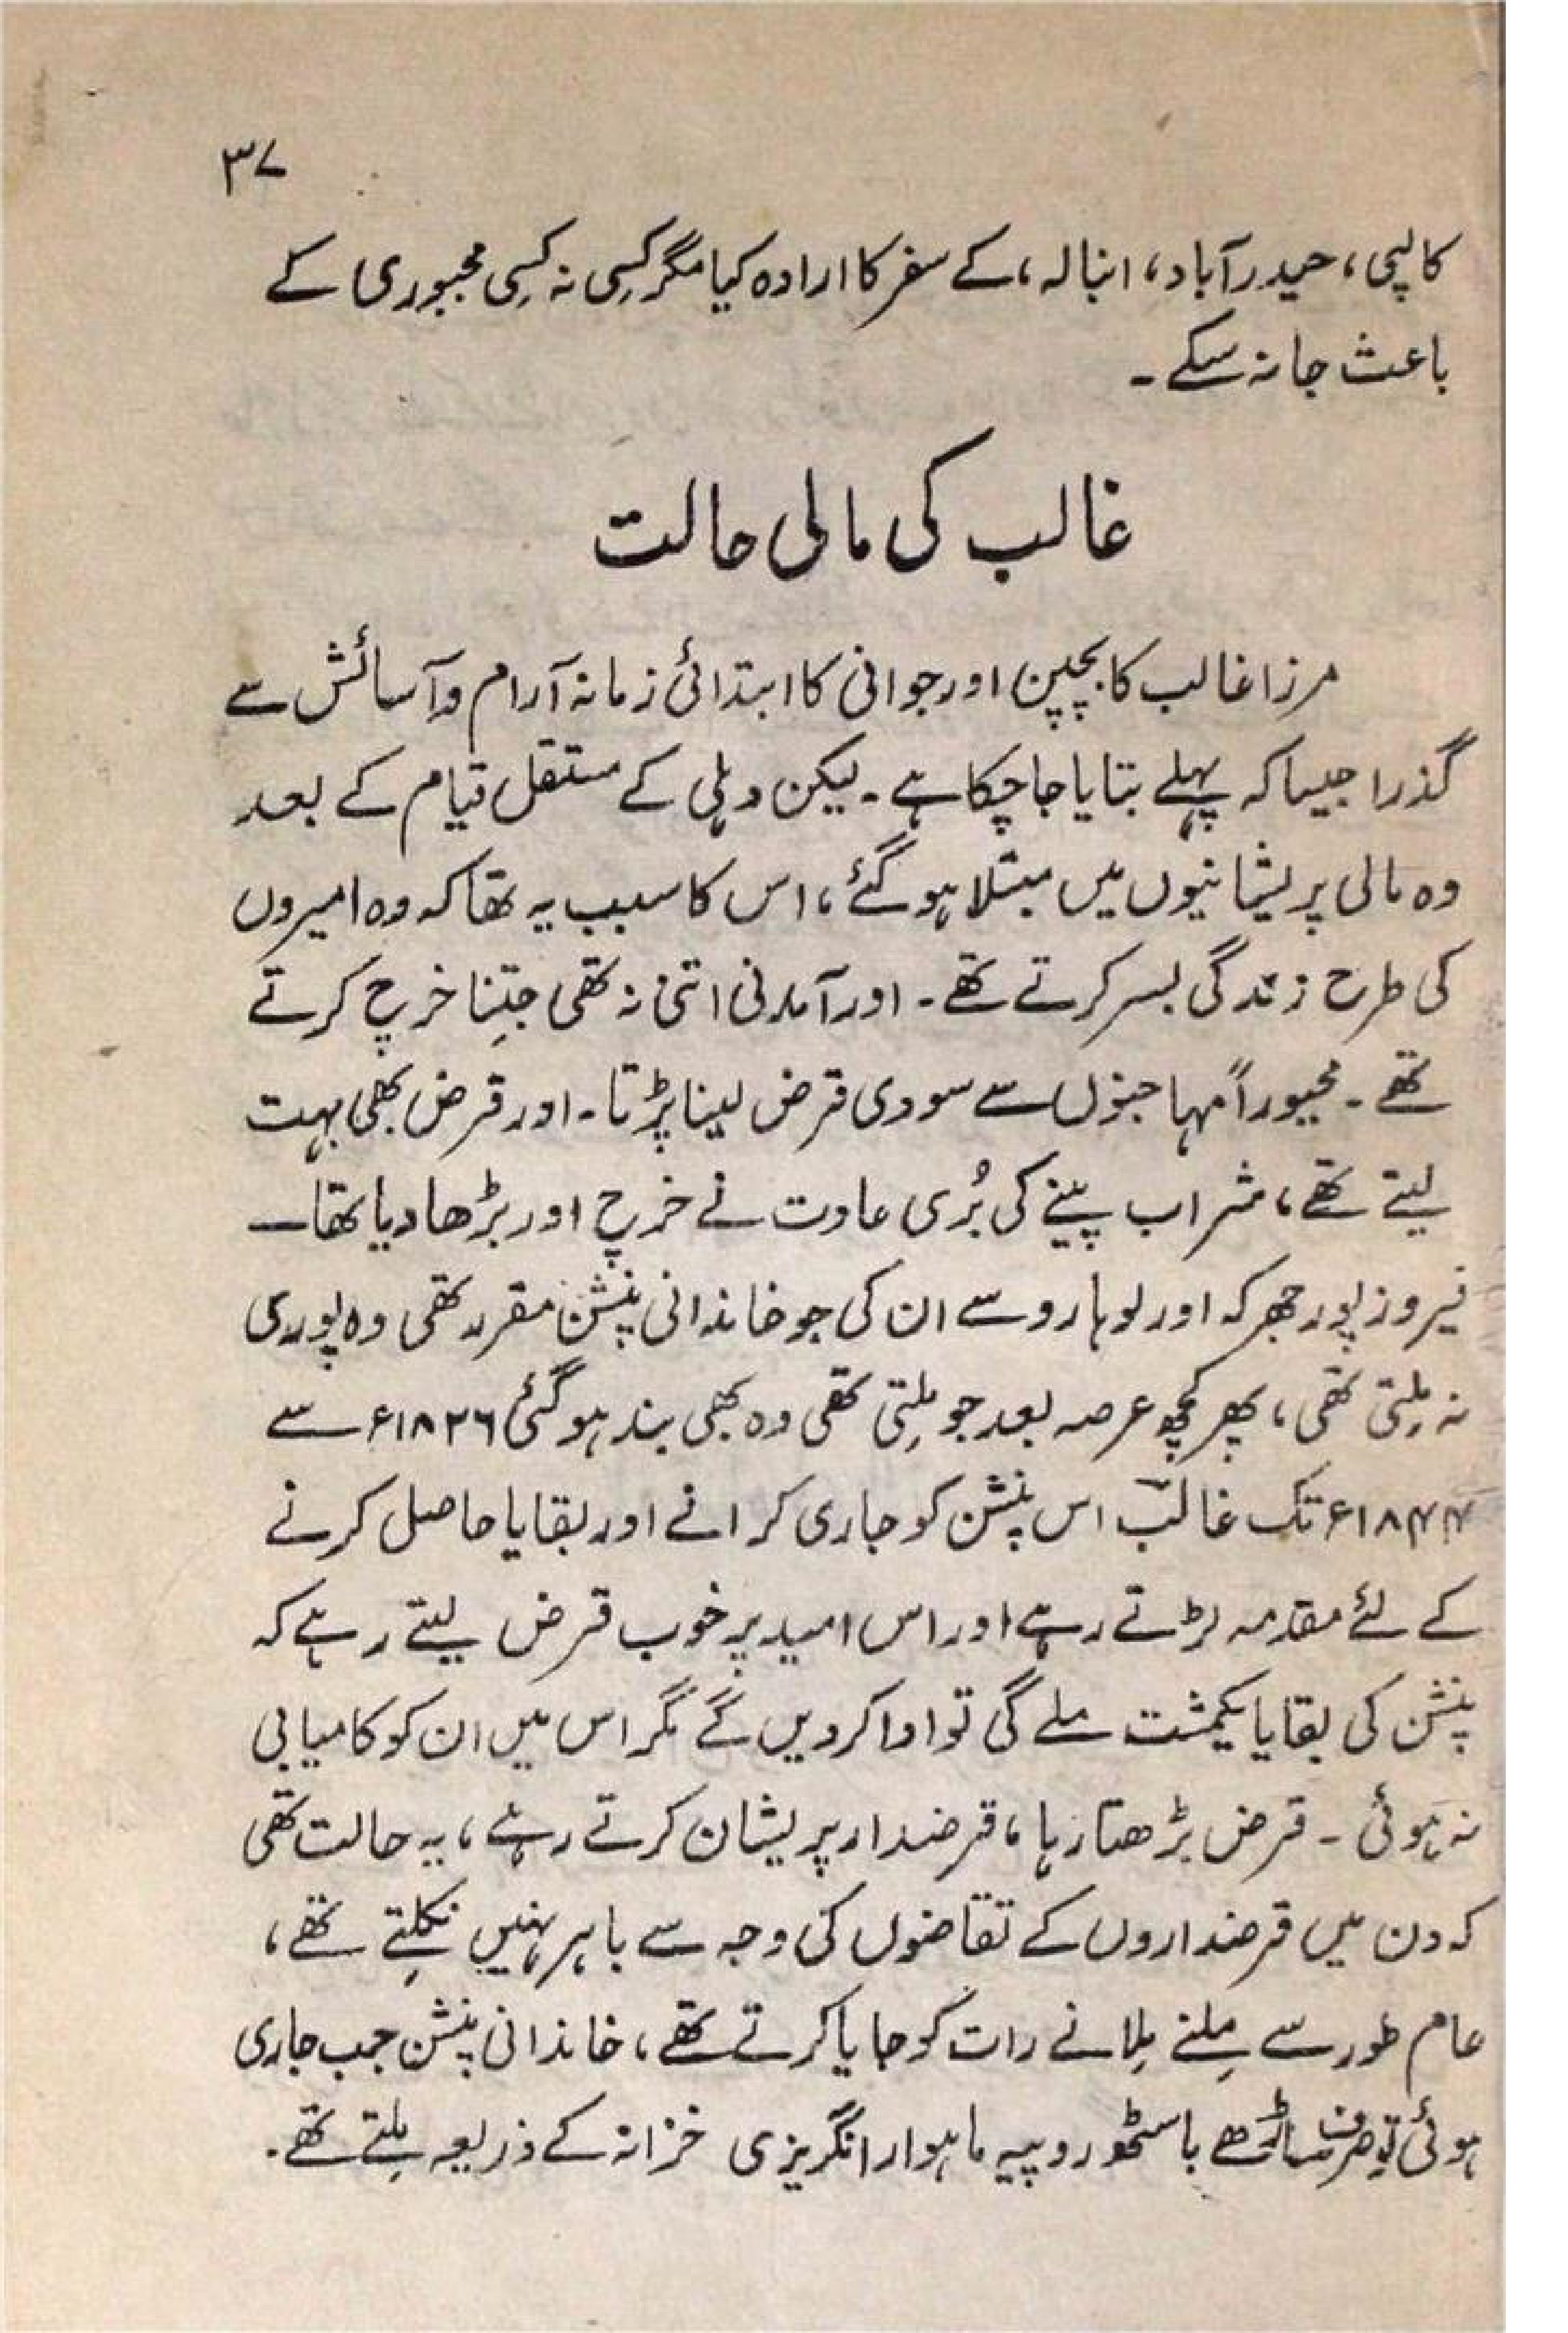 ۳۷
کالپی، حیدرآباد، انبالہ، کے سفر کا ارادہ کیا مگر کسِی نہ کسِی مجبوری کے
باعث جا نہ سکے ۔
غالب کی مالی حالت
مرزا غالب کا بچپن اور جوانی کا ابتدائی زمانہ آرام و آسائش سے
گذرا جیسا کہ پہلے بتایا جا چکا ہے ۔ لیکن دہلی کے مستقل قیام کے بعد
وہ مالی پریشانیوں میں مبتلا ہو گئے، اس کا سبب یہ تھا کہ وہ امیروں
کی طرح زندگی بسر کرتے تھے ۔ اور آمدنی اتنی نہ تھی جتِنا خرچ کرتے
تھے ۔ مجبوراً مہاجنوں سے سودی قرض لینا پڑتا ۔ اور قرض بھی بہت
لیتے تھے، شراب پینے کی بُری عادت نے خرچ اور بڑھا دیا تھا ــ
فیروز پور جھرکہ اور لوہارو سے ان کی جو خاندانی پنشن مقرر تھی وہ پوری
نہ مِلتی تھی، پھر کچھ عرصہ بعد جو مِلتی تھی وہ بھی بند ہو گئی ۱۸۲۶ء سے
۱۸۴۴ء تک غالبؔ اس پنشن کو جاری کرانے اور بقایا حاصل کرنے
کے لئے مقدمہ لڑتے رہے اور اس امید پر خوب قرض لیتے رہے کہ
پنشن کی بقایا یکمشت ملے گی تو ادا کر دیں گے مگر اس میں ان کو کامیابی
نہ ہوئی ۔ قرض بڑھتا رہا، قرضدار پریشان کرتے رہے، یہ حالت تھی
کہ دن میں قرضداروں کے تقاضوں کی وجہ سے باہر نہیں نکلِتے تھے،
عام طور سے مِلنے مِلانے رات کو جایا کرتے تھے، خاندانی پنشن جب جاری
ہوئی تو صرف ساڑھے باسٹھ روپیہ ماہوار انگریزی خزانہ کے ذریعہ مِلتے تھے ۔